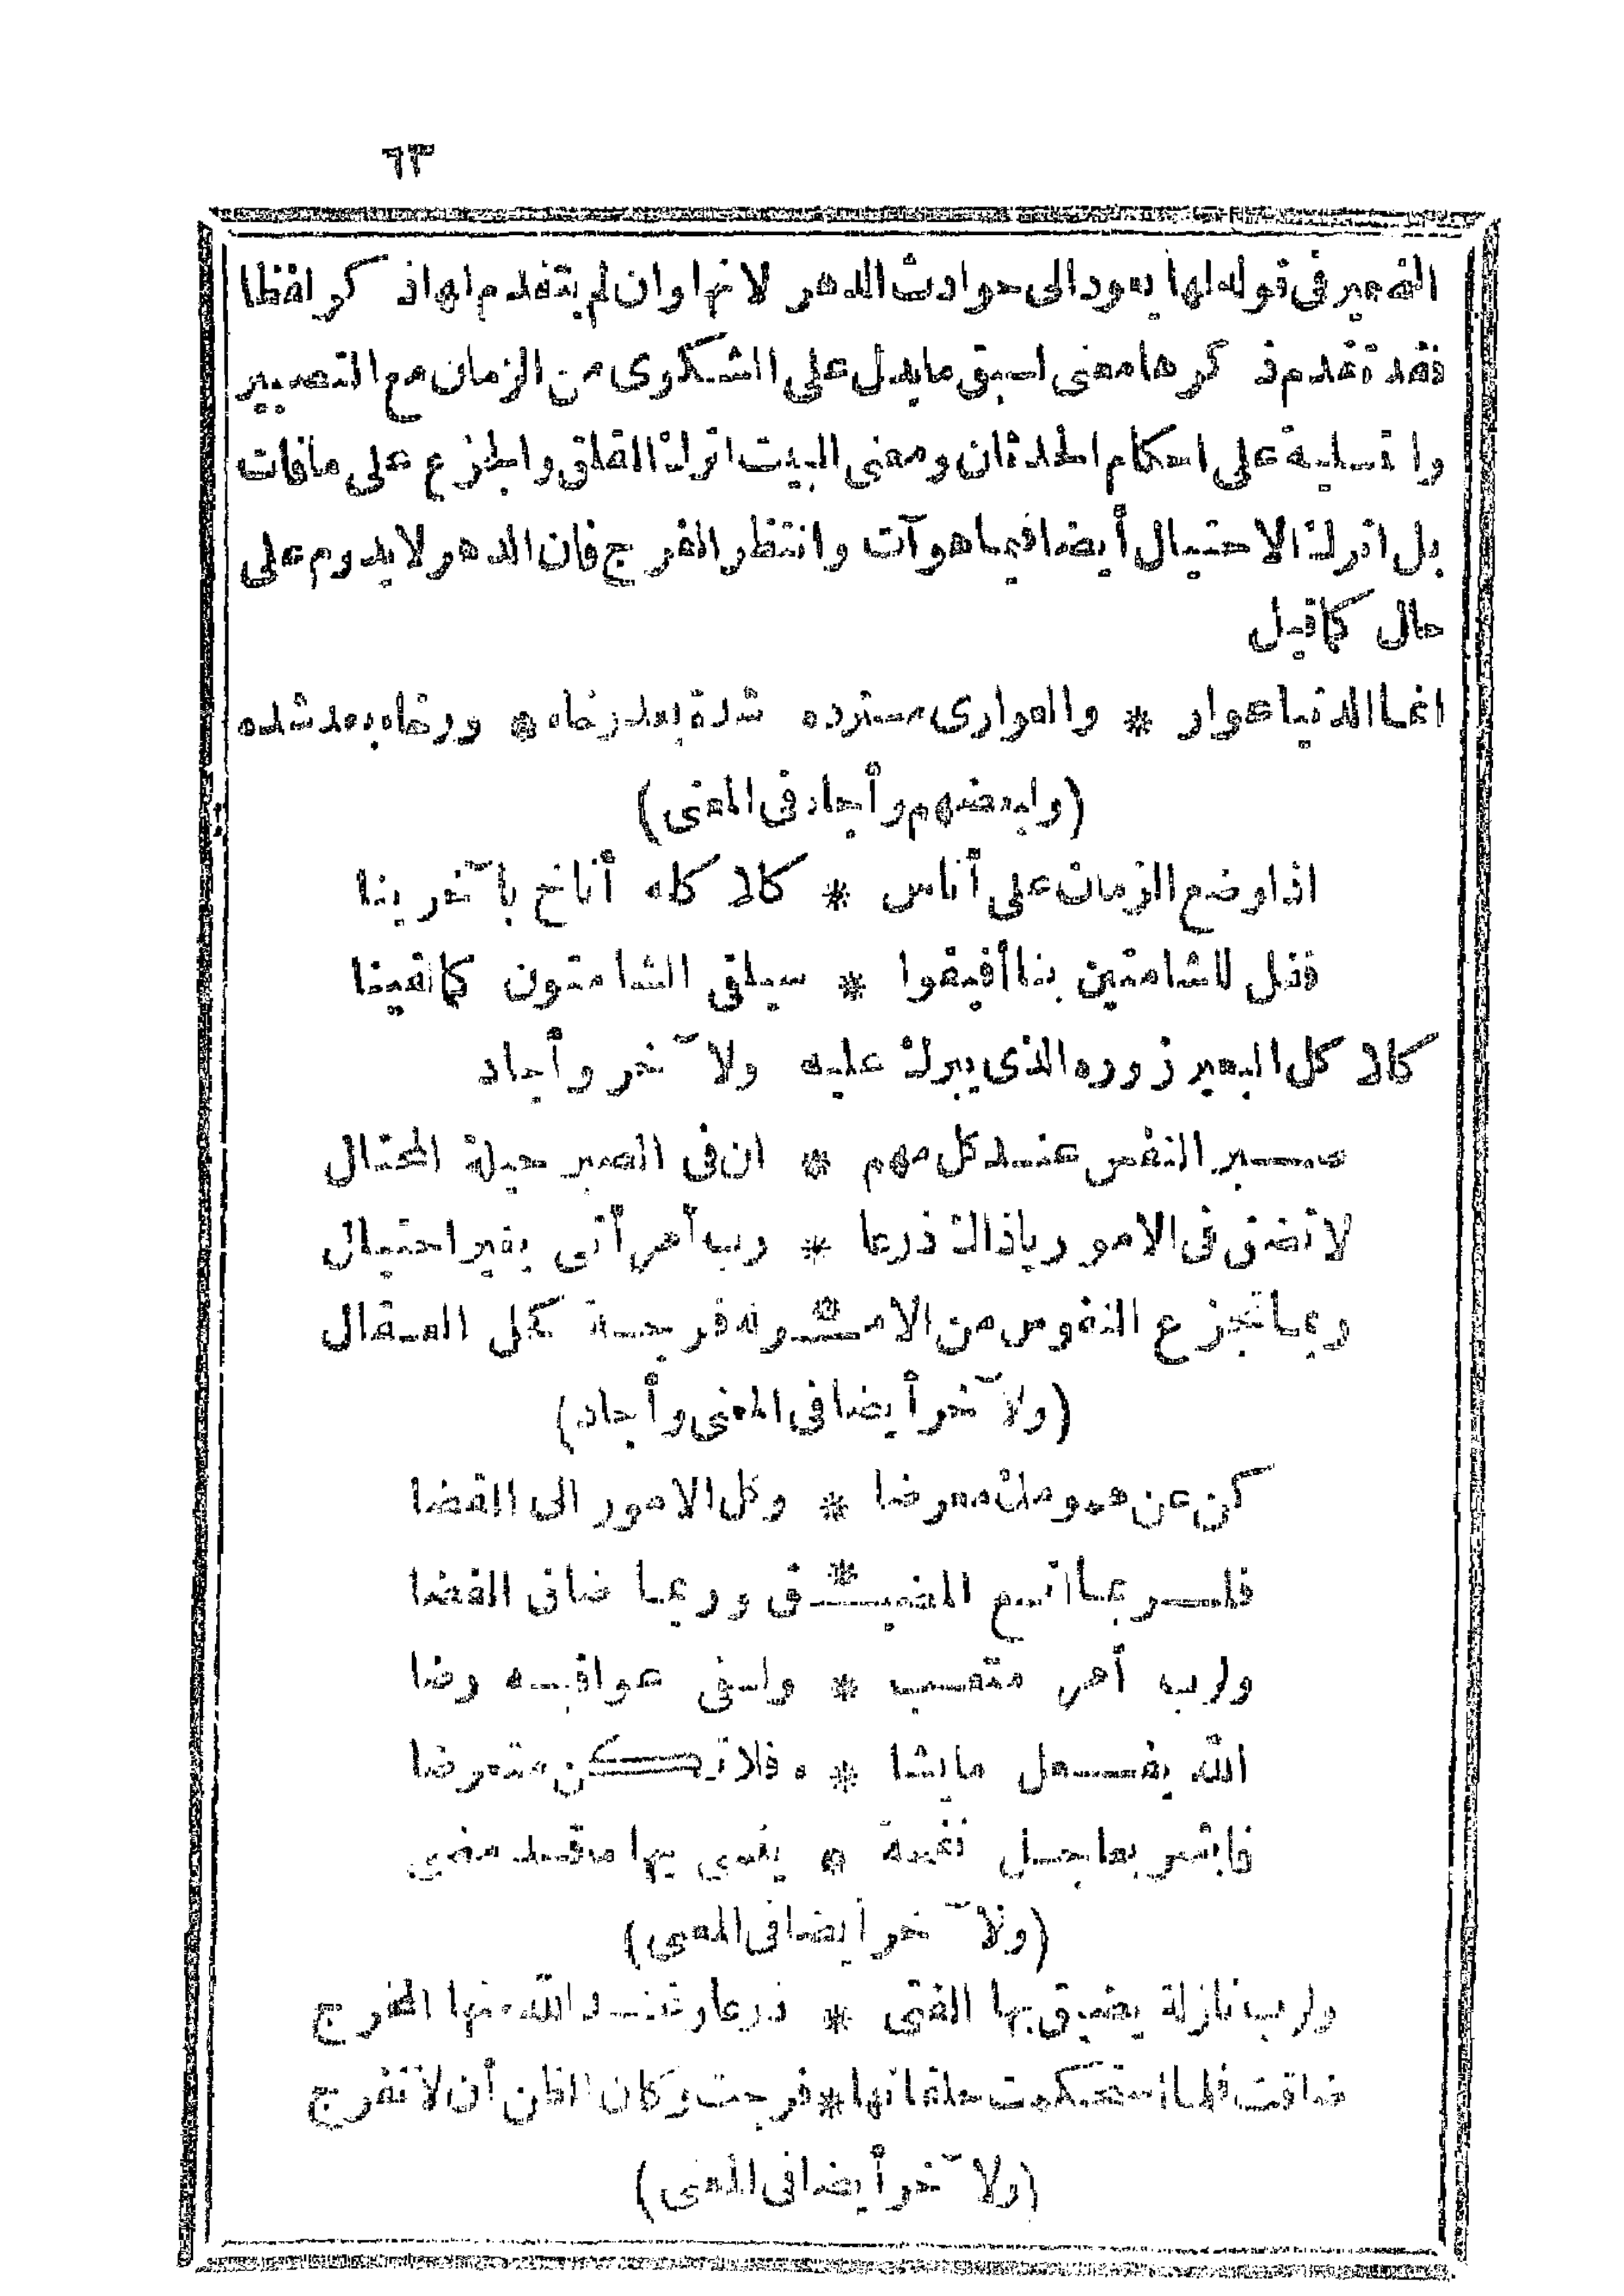 ٦٣
الضمير فى قوله لها يعود الى حوادث الدهر لانها وان لم يتقدم لها ذكر لفظا
فقد تقدم ذكرها معنى لسبق ما يدل على الشكوى من الزمان مع التصبير
والتسلية على احكام الحدثان ومعنى البيت اترك القلق والجزع على مافات
بل اترك الاحتيال أيضا فيما هو آت وانتظر الفرج فان الدهر لا يدوم على
حال كما قيل
انما الدنيا عوار * والعوارى مسترده شدة بعد رخاء * ورخاء بعد شده
(ولبعضهم وأجاد فى المعنى)
اذا وضع الزمان على أناس * كلا كله أناخ بآخرينا
فقل للشامتين بنا أفيقوا * سيلقى الشامتون كما لقينا
كلا كل البعير زوره الذى يبرك عليه ولآخر وأجاد
صبر النفس عند كل مهم * ان فى الصبر حيلة المحتال
لا تضق فى الامور ياذاك ذرعا * رب أمر أتى بغير احتيال
ربما تجزع النفوس من الامـ*ـر له فرجة كحل العقال
(ولآخر أيضا فى المعنى وأجاد)
كن عن همومك معرضا * وكل الامور الى القضا
فلربما اتسع المضيـ*ـق وربما ضاق الفضا
ولرب أمر متعب * ولى فى عواقبه رضا
الله يفعل ما يشا * ء فلا تكن متعرضا
فابشر بعاجل نعمة * ينسى بها ما قد مضى
(ولآخر أيضا فى المعنى)
ولرب نازلة يضيق بها الفتى * ذرعا وعند الله منها المخرج
ضاقت فلما استحكمت حلقاتها * فرجت وكان الظن أن لا تفرج
(ولآخر أيضا فى المعنى)